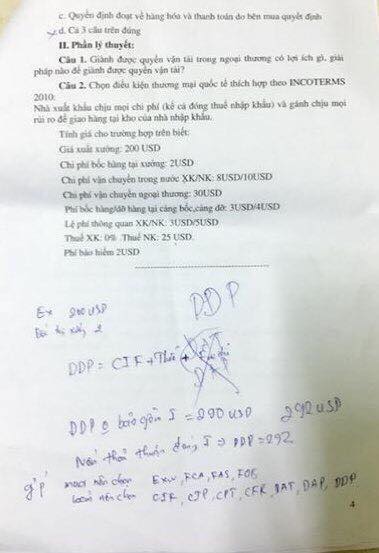 c. Quyền định đoạt về hàng hóa và thanh toán do bên mua quyết định
d. Cả 3 câu trên đúng
II. Phần lý thuyết:
Câu 1. Giành được quyền vận tải trong ngoại thương có lợi ích gì, giải
pháp nào để giành được quyền vận tải?
Câu 2. Chọn điều kiện thương mại quốc tế thích hợp theo INCOTERMS
2010:
Nhà xuất khẩu chịu mọi chi phí (kể cả đóng thuế nhập khẩu) và gánh chịu mọi
rủi ro để giao hàng tại kho của nhà nhập khẩu.
Tính giá cho trường hợp trên biết:
Giá xuất xưởng: 200 USD
Chi phí bốc hàng tại xưởng: 2USD
Chi phí vận chuyển trong nước XK/NK: 8USD/10USD
Chi phí vận chuyển ngoại thương: 30USD
Phí bốc hàng/dỡ hàng tại cảng bốc,cảng dỡ: 3USD/4USD
Lệ phí thông quan XK/NK: 3USD/5USD
Thuế XK: 0% Thuế NK: 25 USD.
Phí bảo hiểm 2USD
DDP
Ex 200 USD
2
DDP = CIF + Thuế +
DDP bao gồm I = 290 USD 292 USD
Nếu thỏa thuận đóng I => DDP = 292
nên chọn EXW, FCA, FAS, FOB
nên chọn CIF, CIP, CPT, CFR, DAT, DAP, DDP
4